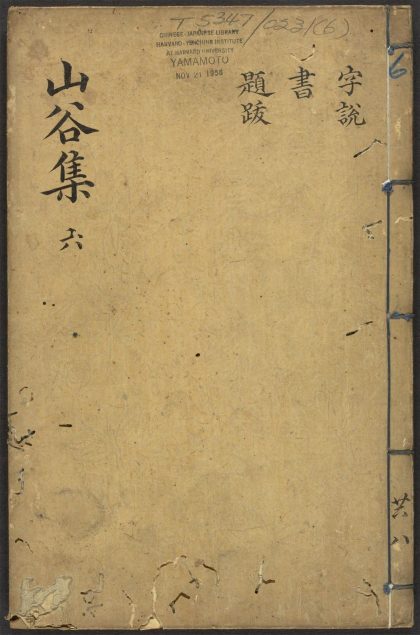 T 5347/0231(6)
CHINESE-JAPANESE LIBRARY
HARVARD-YENCHING INSTITUTE
AT HARVARD UNIVERSITY
YAMAMOTO
NOV 21 1958
6
字說
書
題跋
山谷集
六
共八